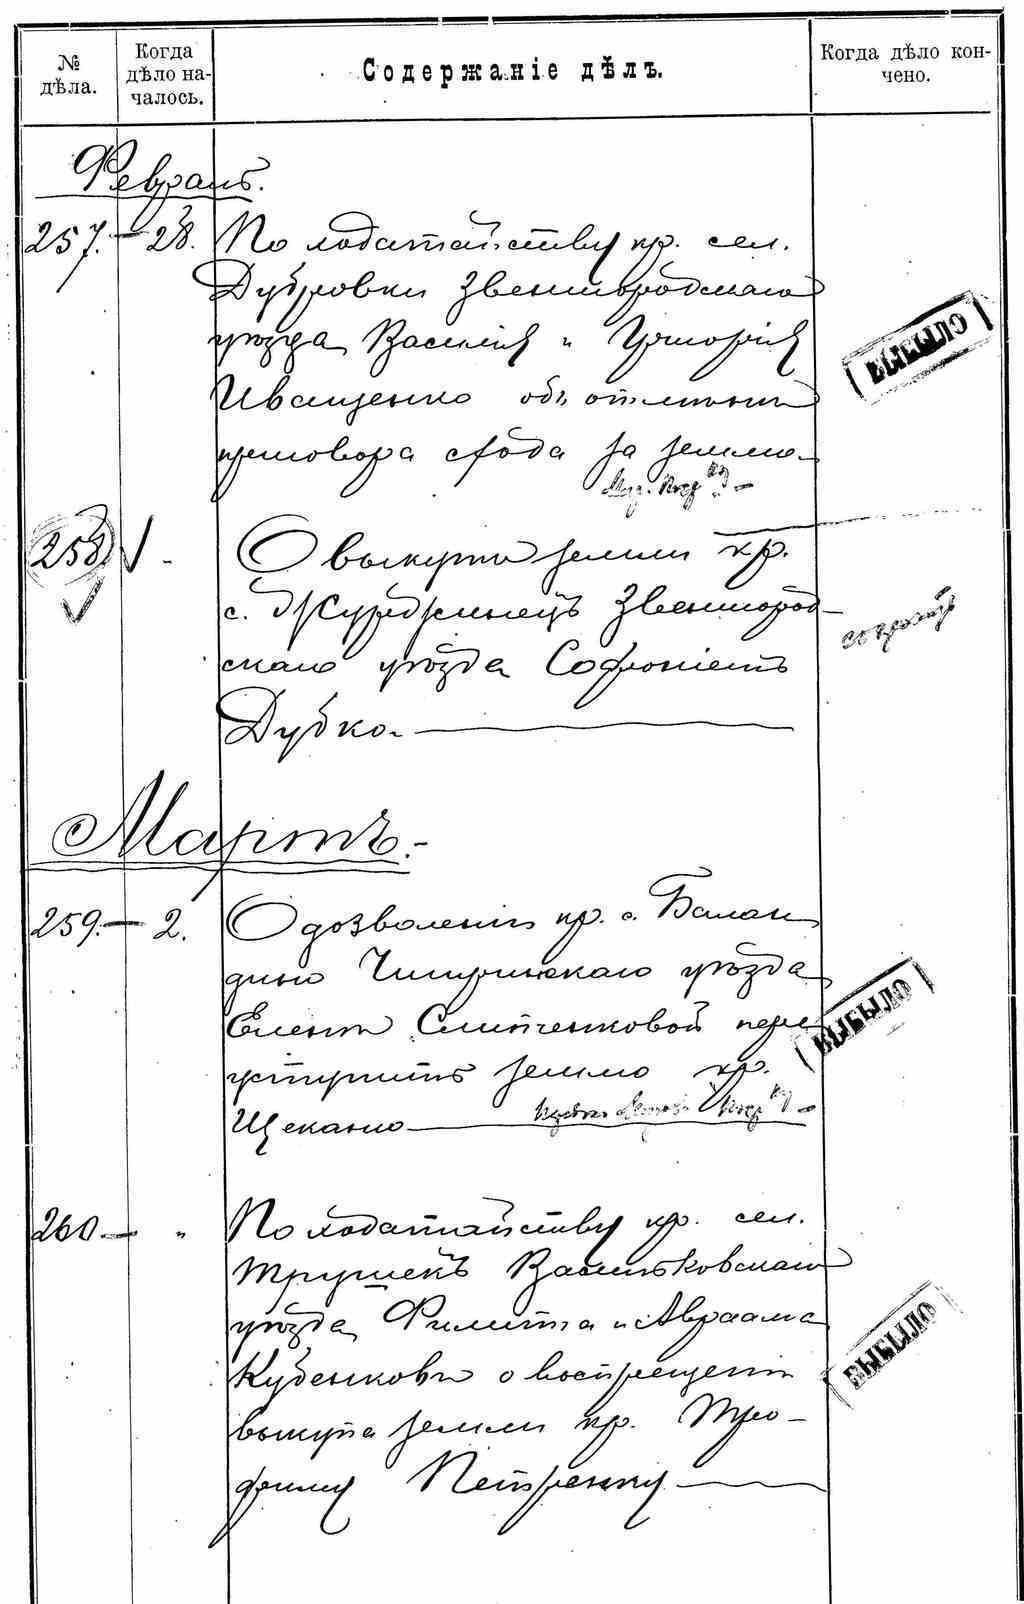 № дѣла.
Когда дѣло началось.
Содержаніе дѣлъ.
Когда дѣло кончено.
Февраль.
257. – 28. По ходатайству кр. сел.
Дубровки Звенигородскаго
уѣзда Василія и Григорія
Иващенко объ отмѣнѣ
приговора схода за землю.
ВЫБЫЛО
258 О выкупѣ земли кр.
с. Журжинецъ Звенигород-
скаго уѣзда Софроніемъ
Дубко.
Мартъ.
259. – 2. О дозволеніи кр. с. Балан
дино Чигиринскаго уѣзда
Еленѣ Слипченковой пере
уступить землю кр.
Щекано
ВЫБЫЛО
260. – " По ходатайству кр. сел.
Трушекъ Васильковскаго
уѣзда Филиппа и Авраама
Куценковъ о воспрещеніи
выкупа земли кр. Тро-
фиму Петренку
ВЫБЫЛО